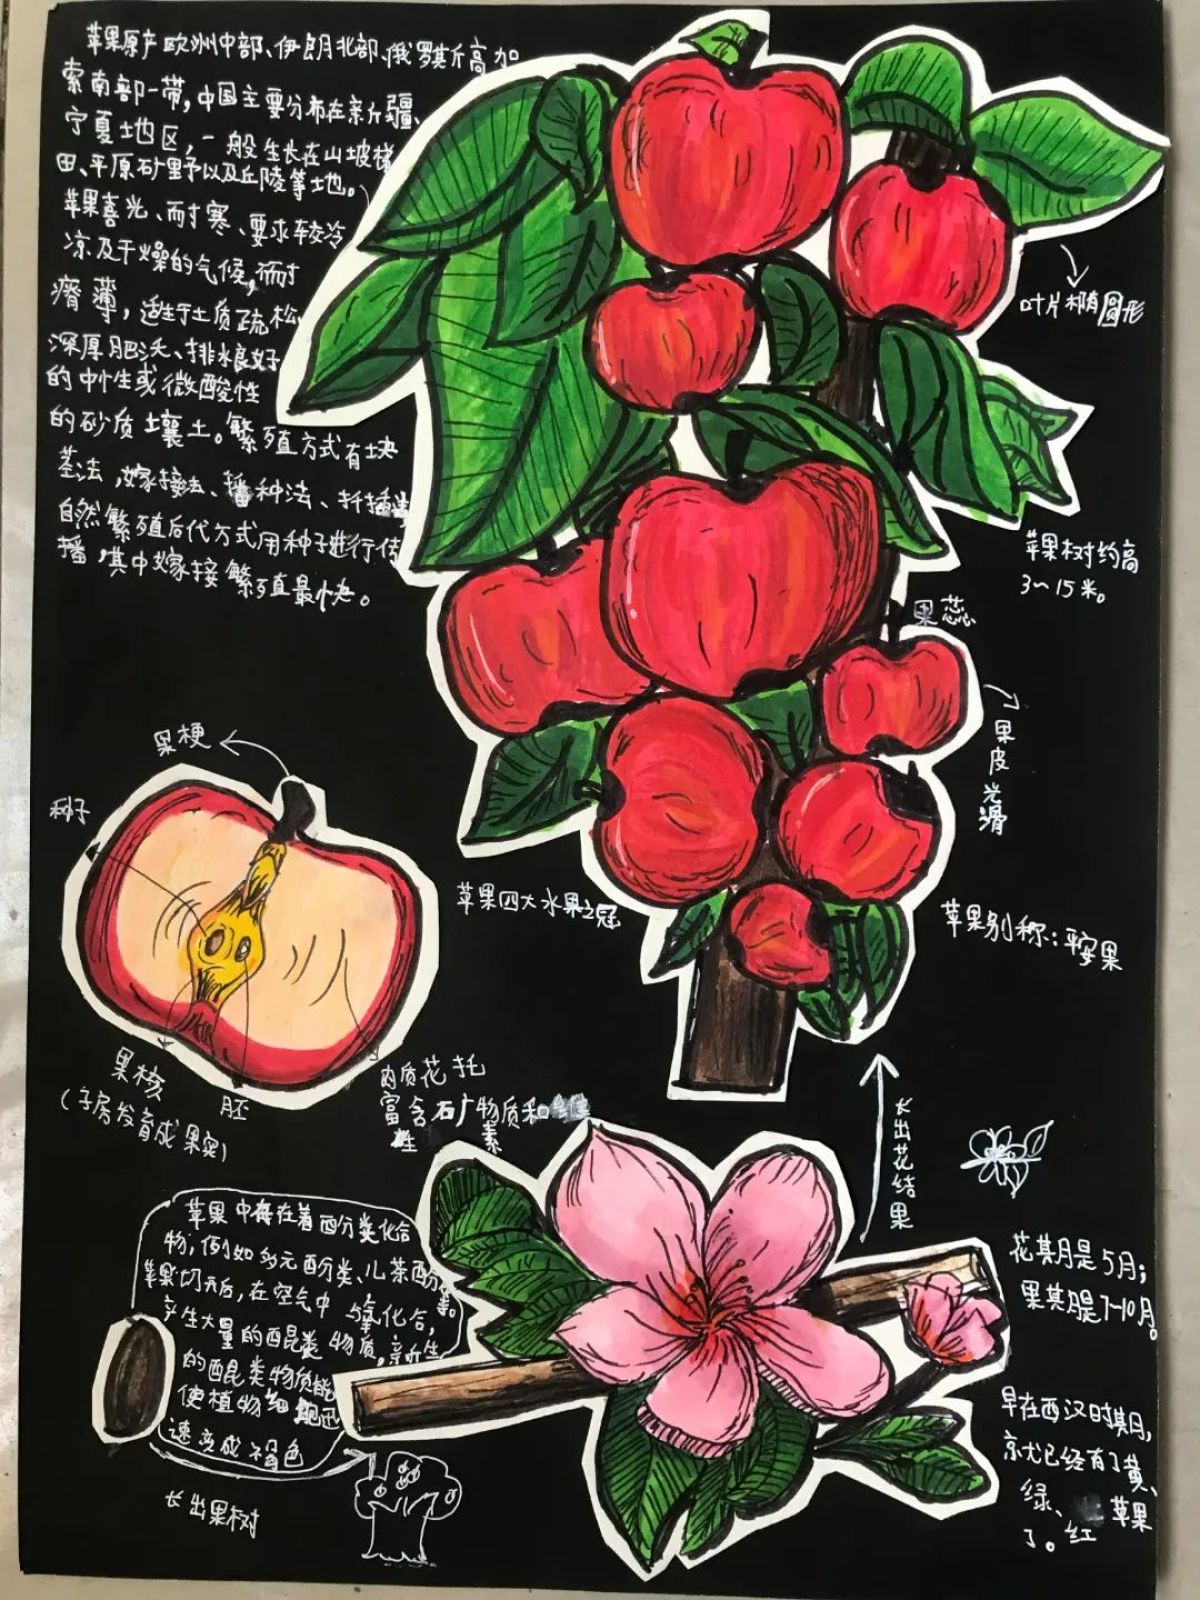 苹果原产欧洲中部、伊朗北部、俄罗斯高加
索南部一带,中国主要分布在新疆、
宁夏地区,一般生长在山坡梯
田、平原矿野以及丘陵等地。
苹果喜光、耐寒、要求较冷
凉及干燥的气候,耐
瘠薄,适生于土质疏松、
深厚肥沃、排水良好
的中性或微酸性
的砂质壤土。繁殖方式有块
茎法,嫁接法、播种法、扦插
自然繁殖后代方式用种子进行传
播,其中嫁接繁殖最快。
叶片椭圆形
苹果树约高
3~15米。
果蕊
果皮光滑
果梗
种子
苹果四大水果之冠
苹果别称:平安果
果核
(子房发育成果实)
胚
肉质花托
富含石矿物质和维
生素
长出花结果
苹果中存在着酚类化合
物,例如多元酚类、儿茶酚等。
苹果切开后,在空气中与氧化合,
产生大量的醌类物质,新生
的醌类物质能
使植物细胞迅
速变成褐色
长出果树
花期是5月;
果期是7-10月。
早在西汉时期,
就已经有了黄、
绿、苹果
了。红